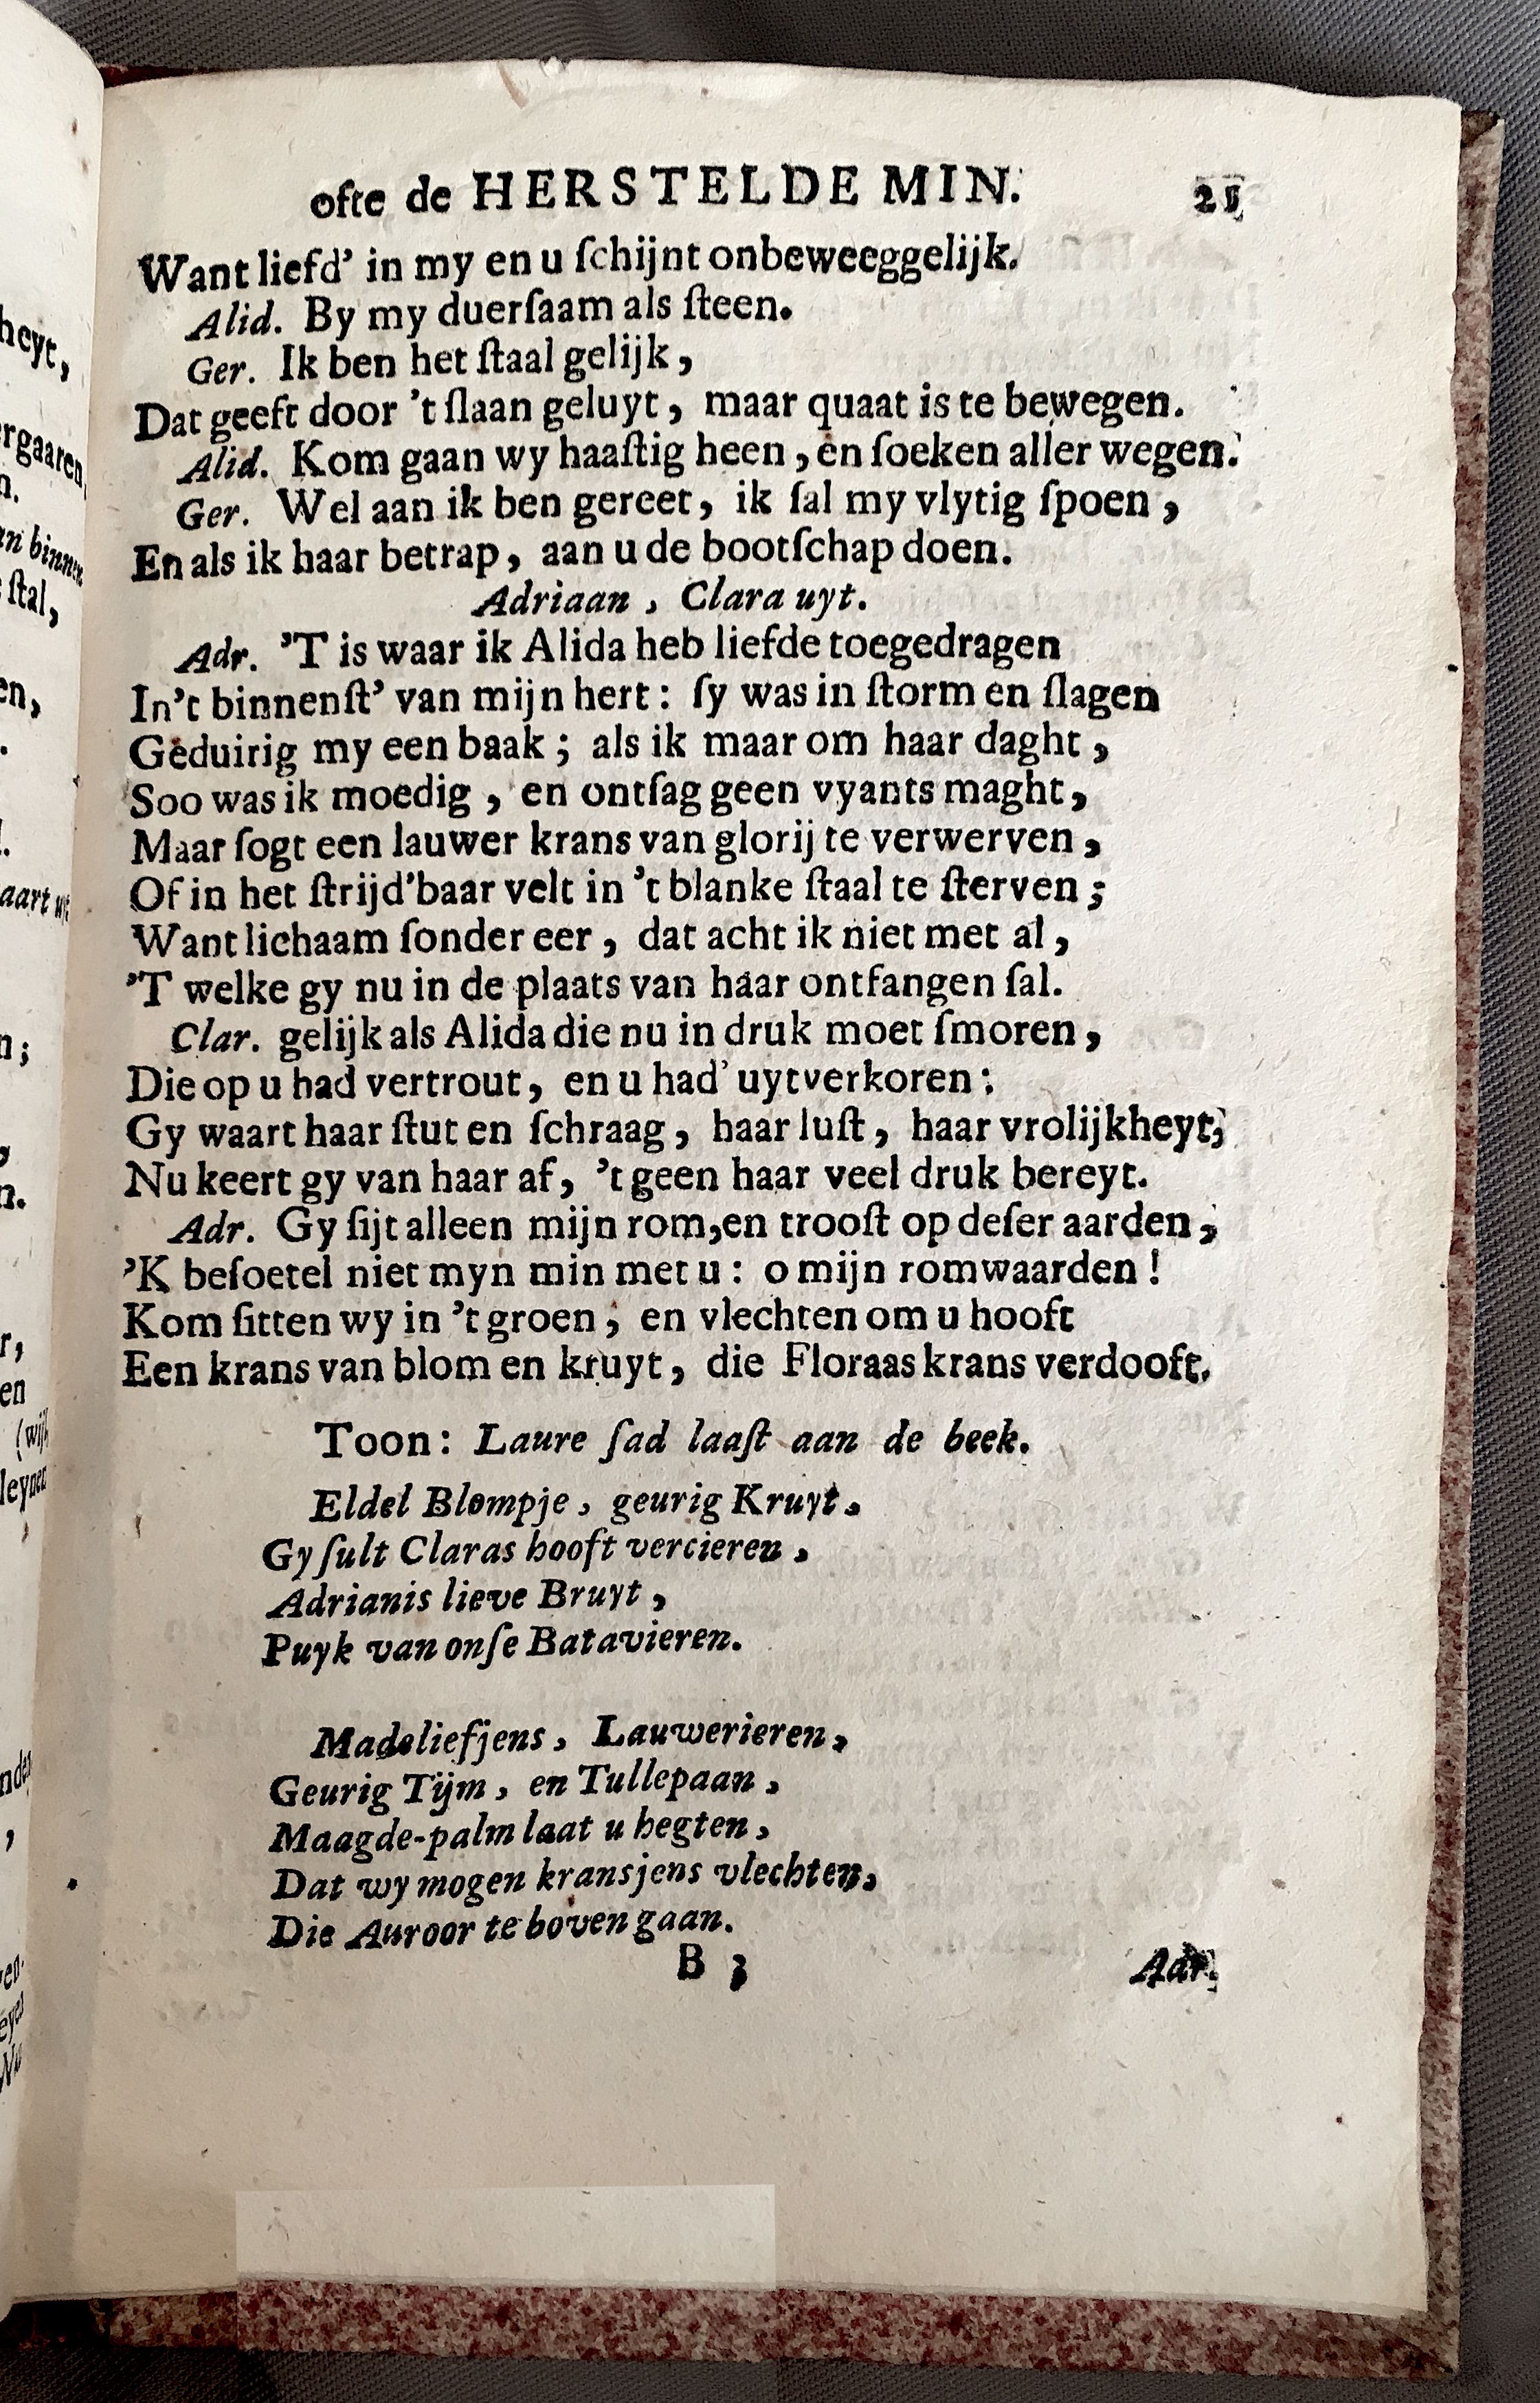 ofte de HERSTELDE MIN. 21
Want liefd' in my en u ſchijnt onbeweeggelijk.
Alid. By my duerſaam als ſteen.
Ger. Ik ben het ſtaal gelijk,
Dat geeft door 't ſlaan geluyt, maar quaat is te bewegen.
Alid. Kom gaan wy haaſtig heen, en ſoeken aller wegen.
Ger. Wel aan ik ben gereet, ik ſal my vlytig ſpoen,
En als ik haar betrap, aan u de bootſchap doen.
Adriaan, Clara uyt.
Adr. 'T is waar ik Alida heb liefde toegedragen
In 't binnenſt' van mijn hert: ſy was in ſtorm en ſlagen
Geduirig my een baak; als ik maar om haar daght,
Soo was ik moedig, en ontſag geen vyants maght,
Maar ſogt een lauwer krans van glorij te verwerven,
Of in het ſtrijd'baar velt in 't blanke ſtaal te ſterven;
Want lichaam ſonder eer, dat acht ik niet met al,
'T welke gy nu in de plaats van haar ontfangen ſal.
Clar. gelijk als Alida die nu in druk moet ſmoren,
Die op u had vertrout, en u had' uytverkoren:
Gy waart haar ſtut en ſchraag, haar luſt, haar vrolijkheyt;
Nu keert gy van haar af, 't geen haar veel druk bereyt.
Adr. Gy ſijt alleen mijn rom, en trooſt op deſer aarden,
'K beſoetel niet myn min met u: o mijn romwaarden!
Kom ſitten wy in 't groen, en vlechten om u hooft
Een krans van blom en kruyt, die Floraas krans verdooft.
Toon: Laure ſad laaſt aan de beek.
Eldel Blompje, geurig Kruyt,
Gy ſult Claras hooft vercieren,
Adrianis lieve Bruyt,
Puyk van onſe Batavieren.
Madeliefjens, Lauwerieren,
Geurig Tijm, en Tullepaan,
Maagde-palm laat u hegten,
Dat wy mogen kransjens vlechten,
Die Auroor te boven gaan.
B 3 Adr.